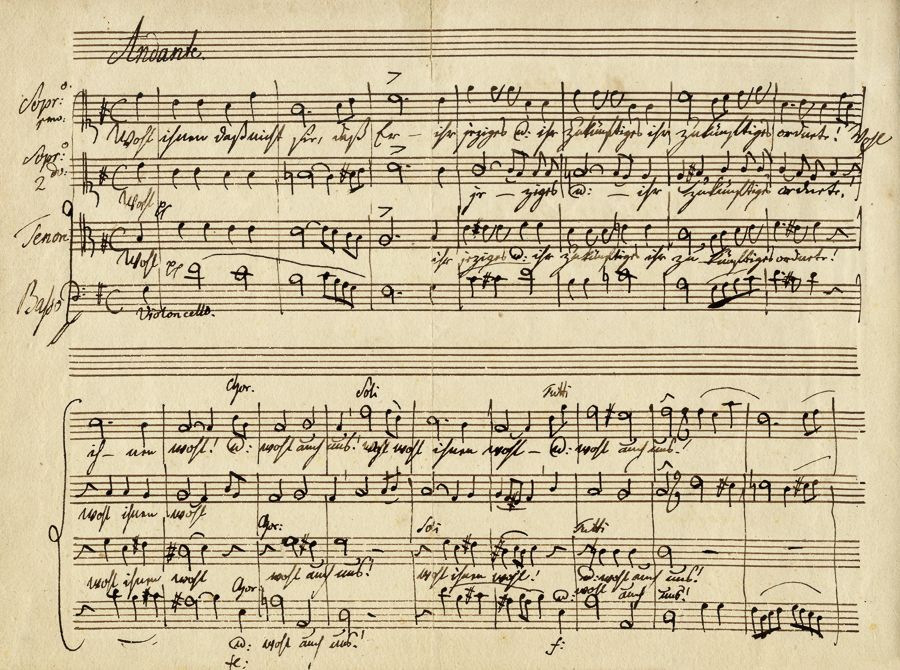 Andante.
Sopr: o
pmo:
Wohl ihnen daß nicht für, daß Er – ihr jeziges u: ihr zukünftiges ihr zukünftiges ordnete! Wohl
Sopr: o
2 do:
Wohl je – ziges u: – ihr zukünftiges ordnete.
pp
Tenor
Wohl ihr jeziges u: ihr zukünftiges ihr zukünftiges ordnete!
pp
Basso
Violoncello.
Chor. Soli Tutti
ih – nen wohl! u: wohl auch uns! wohl ihnen wohl – u: wohl auch uns!
wohl ihnen wohl
Chor: Soli Tutti
wohl ihnen wohl wohl auch uns! wohl ihnen wohl! u: wohl auch uns!
Chor u: wohl auch uns!
u: wohl auch uns!
f: